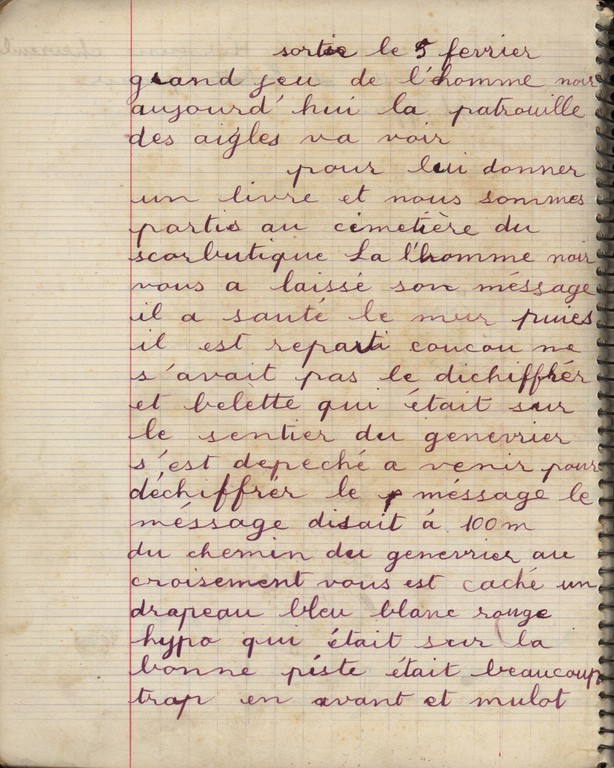 sortie le 5 fevrier
grand jeu de l'homme noir
aujourd'hui la patrouille
des aigles va voir
pour lui donner
un livre et nous sommes
partis au cimetière du
scorbutique La l'homme noir
vous a laissé son méssage
il a santé le mur puies
il est reparti coucou ne
s'avait pas le dichiffrér
et belette qui était sur
le sentier du genevrier
s'est depeché a venir pour
déchiffrér le méssage le
méssage disait á 100m
du chemin du genevrier au
croisement vous est caché un
drapeau bleu blanc rouge
hypo qui était sur la
bonne piste était beaucoup
trop en avant et mulot